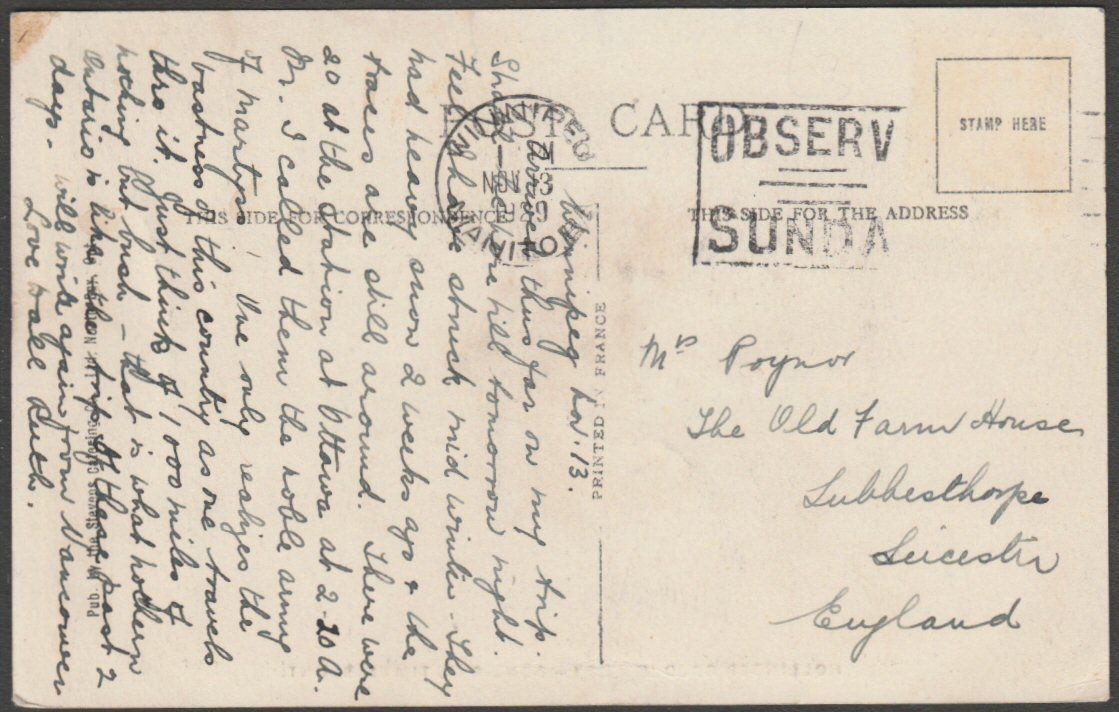 POST CARD
THIS SIDE FOR CORRESPONDENCE
THIS SIDE FOR THE ADDRESS
STAMP HERE
PRINTED IN FRANCE
WINNIPEG
NOV 13
MANITOBA
OBSERV
SUNDA
Winnipeg Nov. 13.
Arrived thus far on my trip.
Shall be here till tomorrow night.
Feel I have struck mid winter - They
had heavy snow 2 weeks ago & the
traces are still around. There were
20 at the station at Ottawa at 2-20 A.
M. I called them the noble army
of martyrs. One only realizes the
vastness of this country as one travels
thro it. Just think of 1000 miles of
nothing but bush - that is what northern
Ontario is like, the trip of these past 2
days. will write again from Vancouver
Love to all
Mrs Poynor
The Old Farm House
Lubbesthorpe
Leicester
England